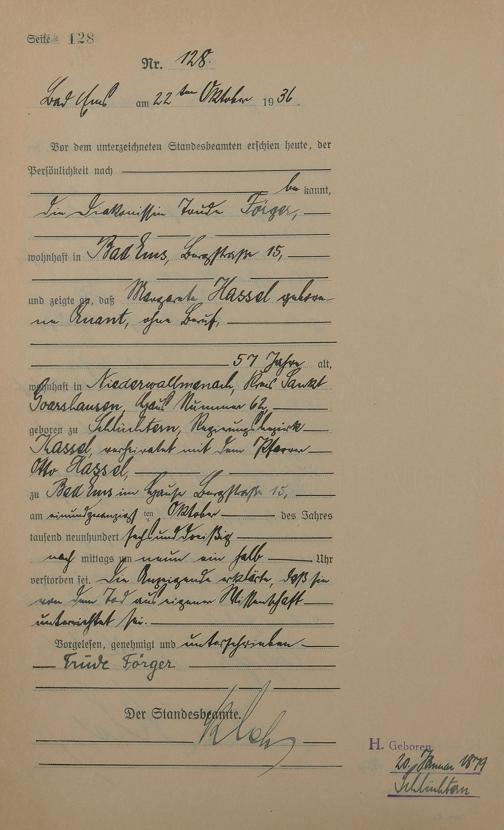 Seite 128
Nr. 128.
Bad Ems am 22ten Oktober 1936.
Vor dem unterzeichneten Standesbeamten erschien heute, der
Persönlichkeit nach
bekannt,
die Diakonissin Trude Förger,
wohnhaft in Bad Ems, Bergstraße 15,
und zeigte an, daß Margarete Hassel gebore-
ne Quant, ohne Beruf,
57 Jahre alt,
wohnhaft in Niederwallmenach, Kreis Sankt
Goarshausen, Haus Nummer 62,
geboren zu Schlüchtern, Regierungsbezirk
Kassel, verheiratet mit dem Pfarrer
Otto Hassel,
zu Bad Ems im Hause Bergstraße 15,
am einundzwanzigsten Oktober des Jahres
tausend neunhundert sechsunddreißig
nach mittags um neun ein halb Uhr
verstorben sei. Die Anzeigende erklärte, daß sie
von dem Tod aus eigener Wissenschaft
unterrichtet sei.
Vorgelesen, genehmigt und unterschrieben
Trude Förger
Der Standesbeamte.
H. Geboren
20. Januar 1879
Schlüchtern